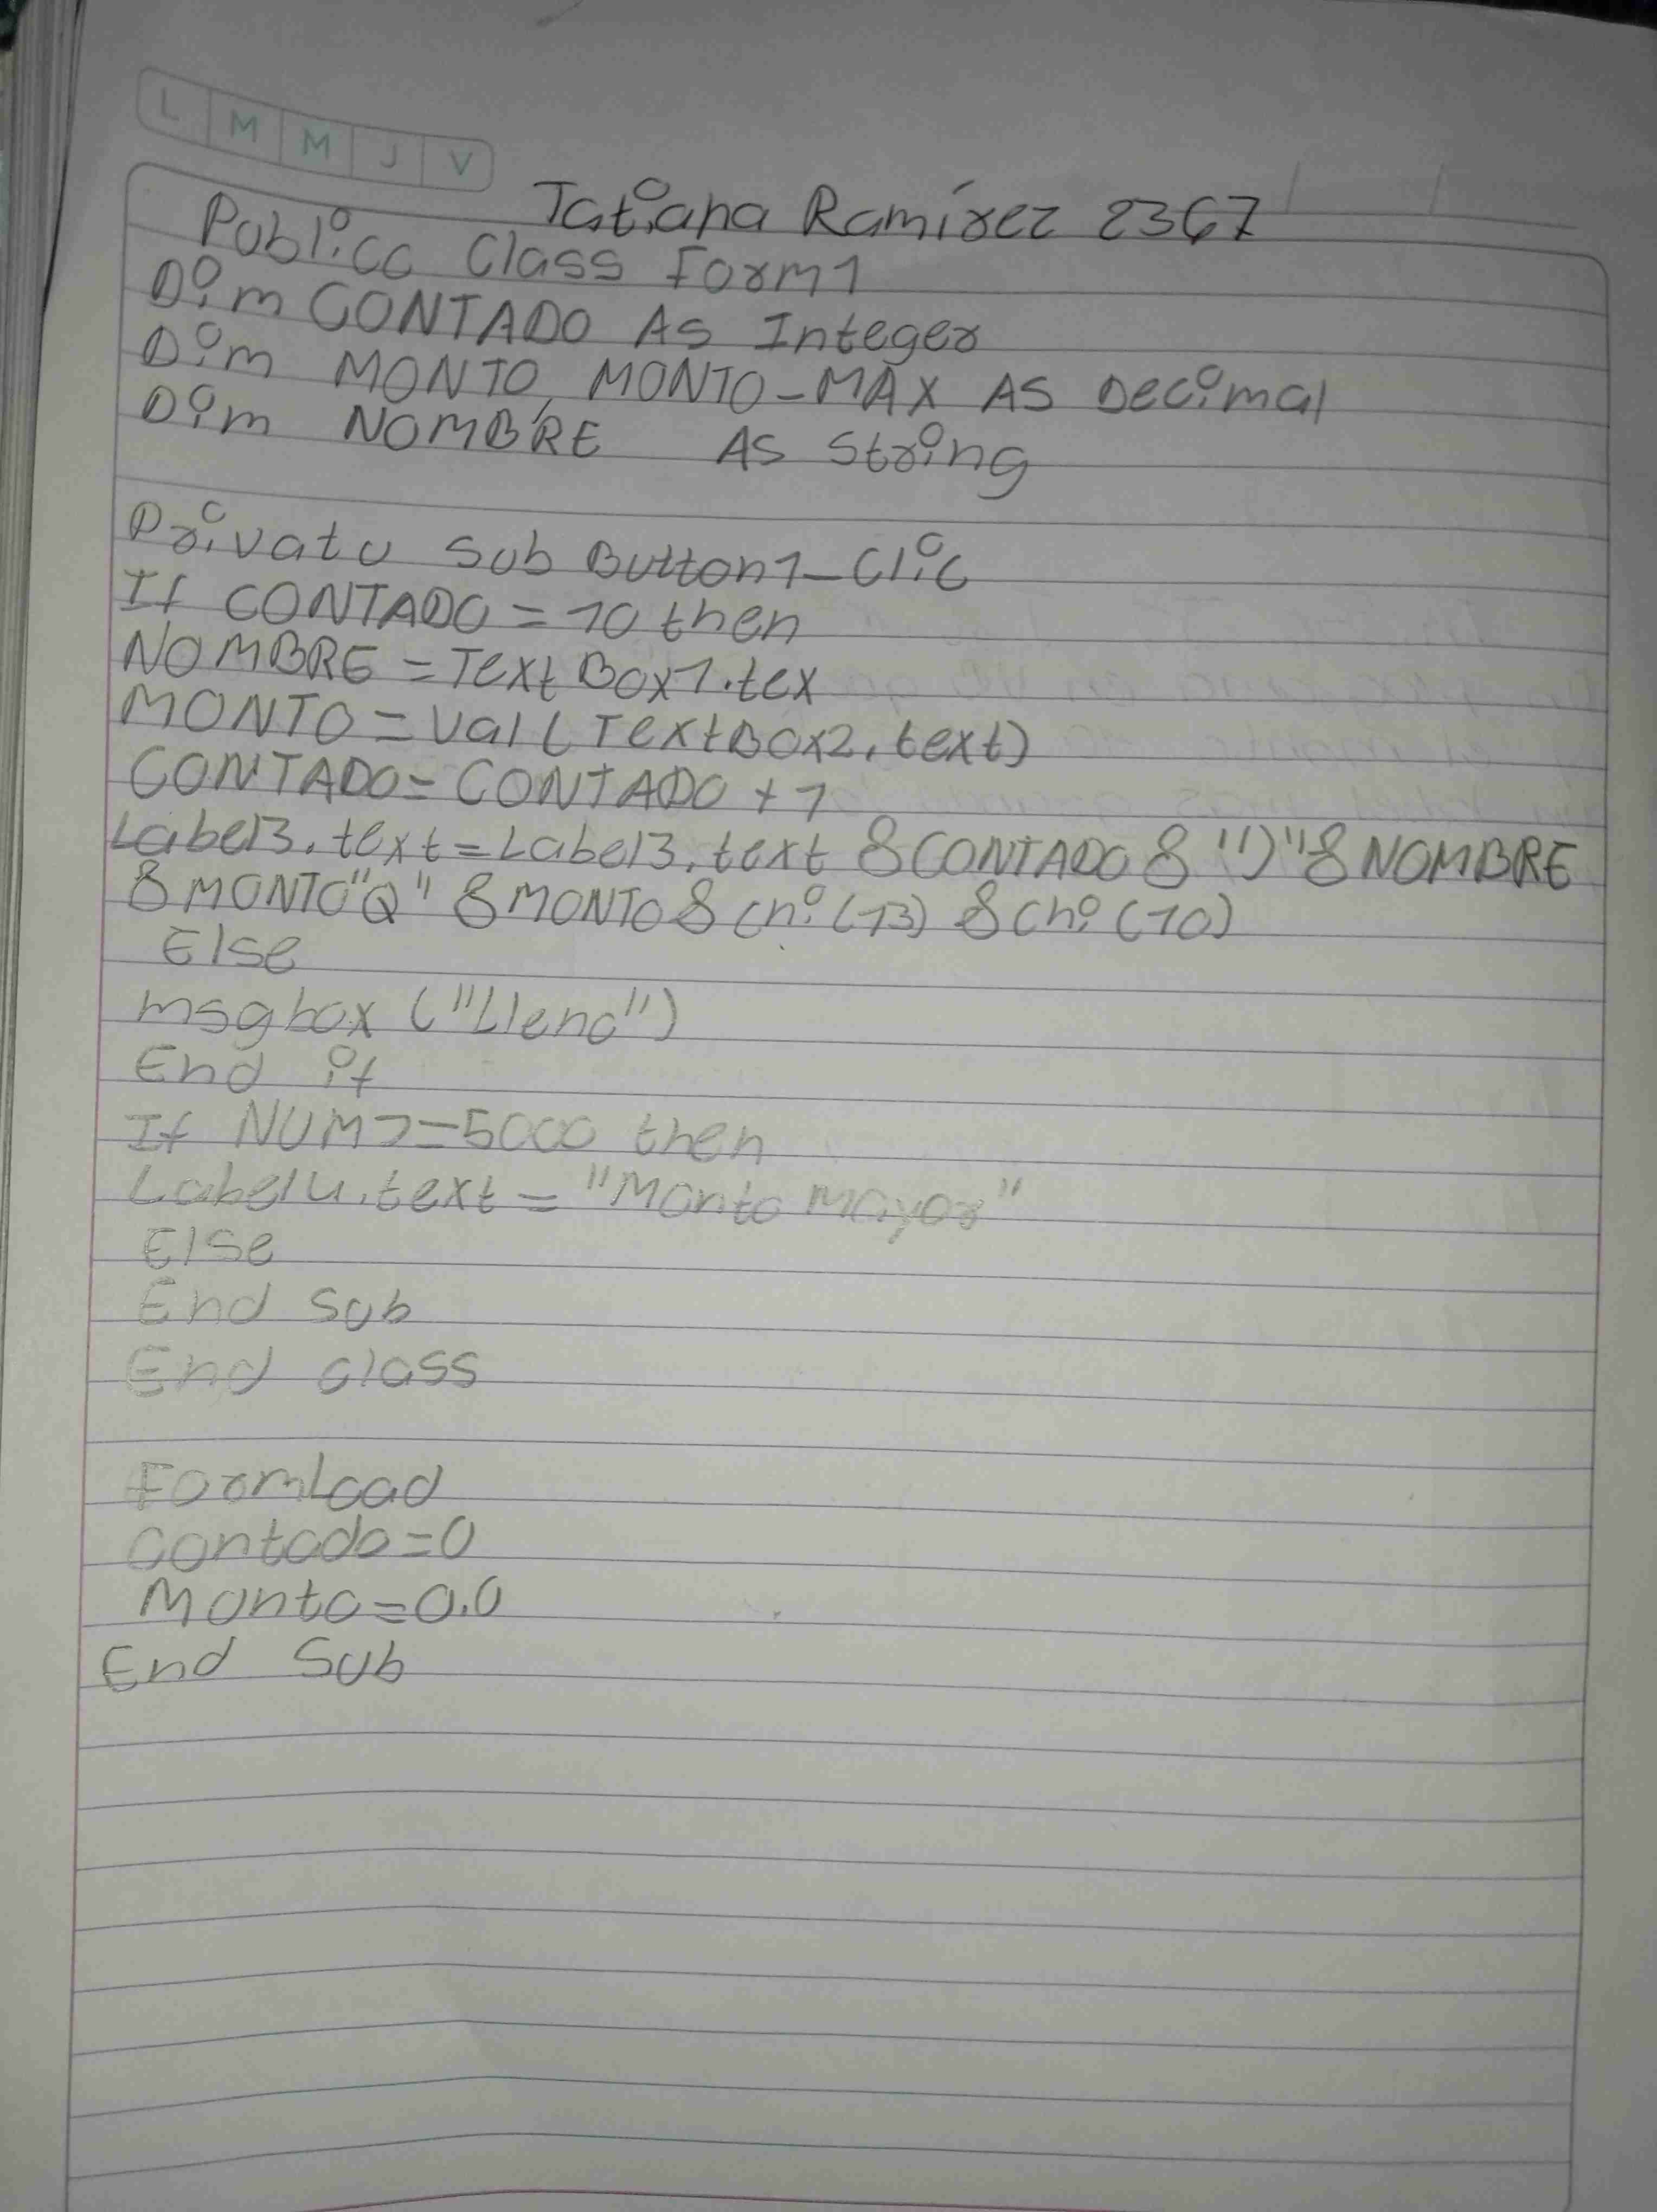 L M M J V
Tatiana Ramírez 2367
Publicc Class Form1
Dim CONTADO As Integer
Dim MONTO, MONTO-MAX AS Decimal
Dim NOMBRE AS String
Privatu Sub Button1_Clic
If CONTADO = 10 then
NOMBRE = Text Box1.tex
MONTO = Val ( TextBox2.text)
CONTADO = CONTADO + 1
Label3.text = Label3.text & CONTADO & ")" & NOMBRE
& MONTO "Q" & MONTO & Chi (13) & Chi (10)
Else
msgbox ("Lleno")
End if
If NUM>=5000 then
Label4.text = "Monto Mayor"
Else
End Sub
End class
FormLoad
contado=0
Monto=0.0
End Sub